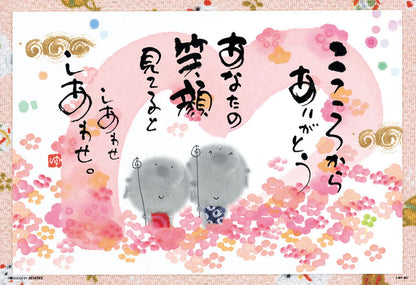 こころから
ありがとう
あなたの
笑顔
見てると
しあわせ
しあわせ。